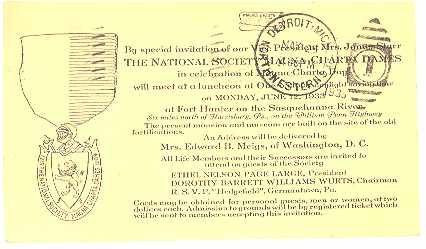 DETROIT, MICH.
NORTHWESTERN
1933
1
By special invitation of our President Mrs.
THE NATIONAL SOCIETY MAGNA CHARTA DAMES
in celebration of Magna Charta Day
will meet at a luncheon at One
on MONDAY, JUNE 1933
at Fort Hunter on the Susquehanna River
Six miles north of Harrisburg, Pa., on the William Penn Highway
The present mansion and museum are built on the site of the old
fortifications.
An Address will be delivered by
Mrs. Edward B. Meigs, of Washington, D. C.
All Life Members and their Successors are invited to
attend as guests of the Society
ETHEL NELSON PAGE LARGE, President
DOROTHY BARRETT WILLIAMS WURTS, Chairman
R. S. V. P. "Hedgefield", Germantown, Pa.
Guests may be obtained for personal guests, men or women, at two
dollars each. Admission to grounds will be by registered ticket which
will be sent to members accepting this invitation.